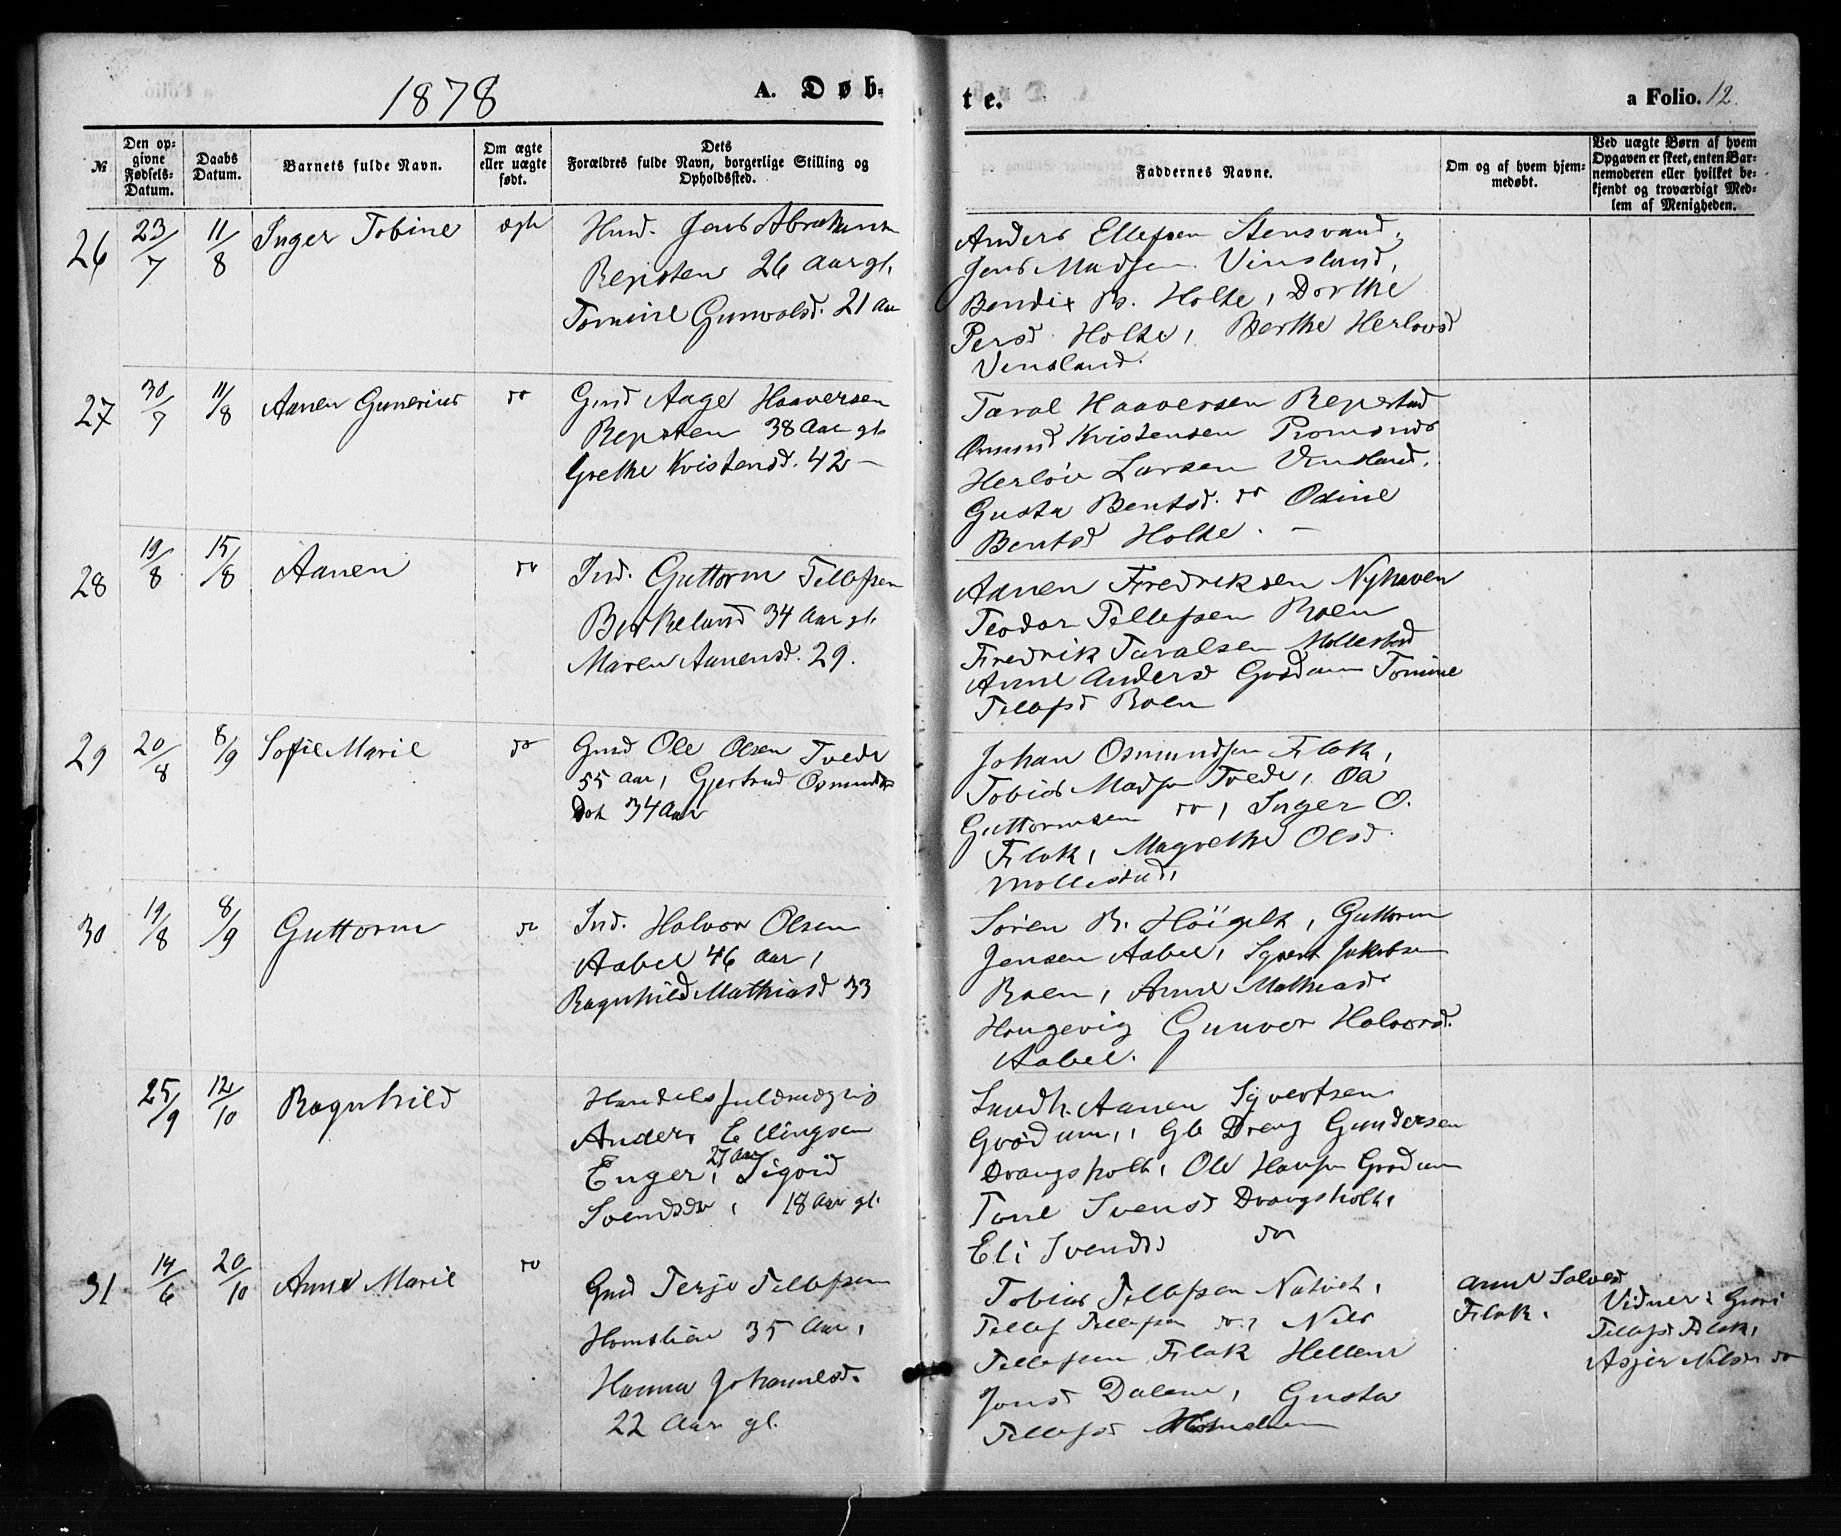 1878
A. Døb-
te.
a Folio. 12.
№
Den op-
givne
Fødsels-
Datum.
Daabs
Datum.
Barnets fulde Navn.
Om ægte
eller uægte
født.
Dets
Forældres fulde Navn, borgerlige Stilling og
Opholdssted.
Faddernes Navne.
Om og af hvem hjem-
medøbt.
Ved uægte Børn af hvem
Opgaven er skeet, enten Bar-
nemoderen eller hvilket be-
kjendt og troværdigt Med-
lem af Menigheden.
26
23/7
11/8
Inger Tobine
ægte
Jens Abrahamsen
Repsten 26 Aar gl.
Tomine Gunvolsd. 21 Aar
Anders Ellefsen Stensvand,
Jens Madsen Vinsland,
Bendix B. Holte, Dorthe
Persd Holte, Berthe Herlovsd
Vinsland.
27
30/7
11/8
Aanen Gunerius
do
Gmd Aage Haaversen
Repsten 38 Aar gl.
Grethe Kristensd. 42 —
Taral Haaversen Repstad
Osmund Kristensen
Herlöv Larsen Vinsland,
Gusta Bentsd. do Odine
Bentsd Holte. —
28
19/8
15/8
Aanen
do
Ind. Guttorm Tellefsen
Birkeland 34 Aar gl.
Maren Aanensd. 29.
Aanen Fredriksen Nyhaven
Teodor Tellefsen Boen
Fredrik Taralsen Mollestad
Anne Andersd Grødum Tomine
Tellefsd Boen
29
20/8
8/9
Sofie Marie
do
Gmd Ole Olsen Tvede
55 Aar, Gjertrud Osmunds
Dat 34 Aar
Johan Osmundsen Flak,
Tobias Madsen Tvede, Ola
Guttormsen do, Inger O.
Flak, Magrethe Olsd.
Mollestad,
30
19/8
8/9
Guttorm
do
Ind. Halvor Olsen
Aabel 46 Aar,
Ragnhild Mathiasd 33
Sören B. Höigilt, Guttorm
Jensen Aabel, Syvert Jakobsen
Boen, Anne Mathiasd
Haugevig Gunvor Halvorsd.
Aabel.
25/9
12/10
Ragnhild
Handelsfuldmægtig
Anders Ellingsen
27 Aar
Enger, Sigrid
Svendsdr, 18 Aar gl.
Landh. Aanen Syvertsen
Grødum, Gb Dreng Gundersen
Drangsholt, Ole Hansen Grødum
Tone Svensd Drangsholt,
Eli Svendsd do
31
14/6
20/10
Anne Marie
do
Gmd Terje Tellefsen
Homslien 35 Aar,
Hanna Johannesd.
22 Aar gl.
Tobias Tellefsen Natvet,
Tellef Tellefsen do, Nils
Tellefsen Flak Hellene
Jensd Dalene, Gusta
Tellefsd
Anne Salvesd
Flak.
Vidner: Guri
Tellefsd Flak,
Asjer Nilsen do